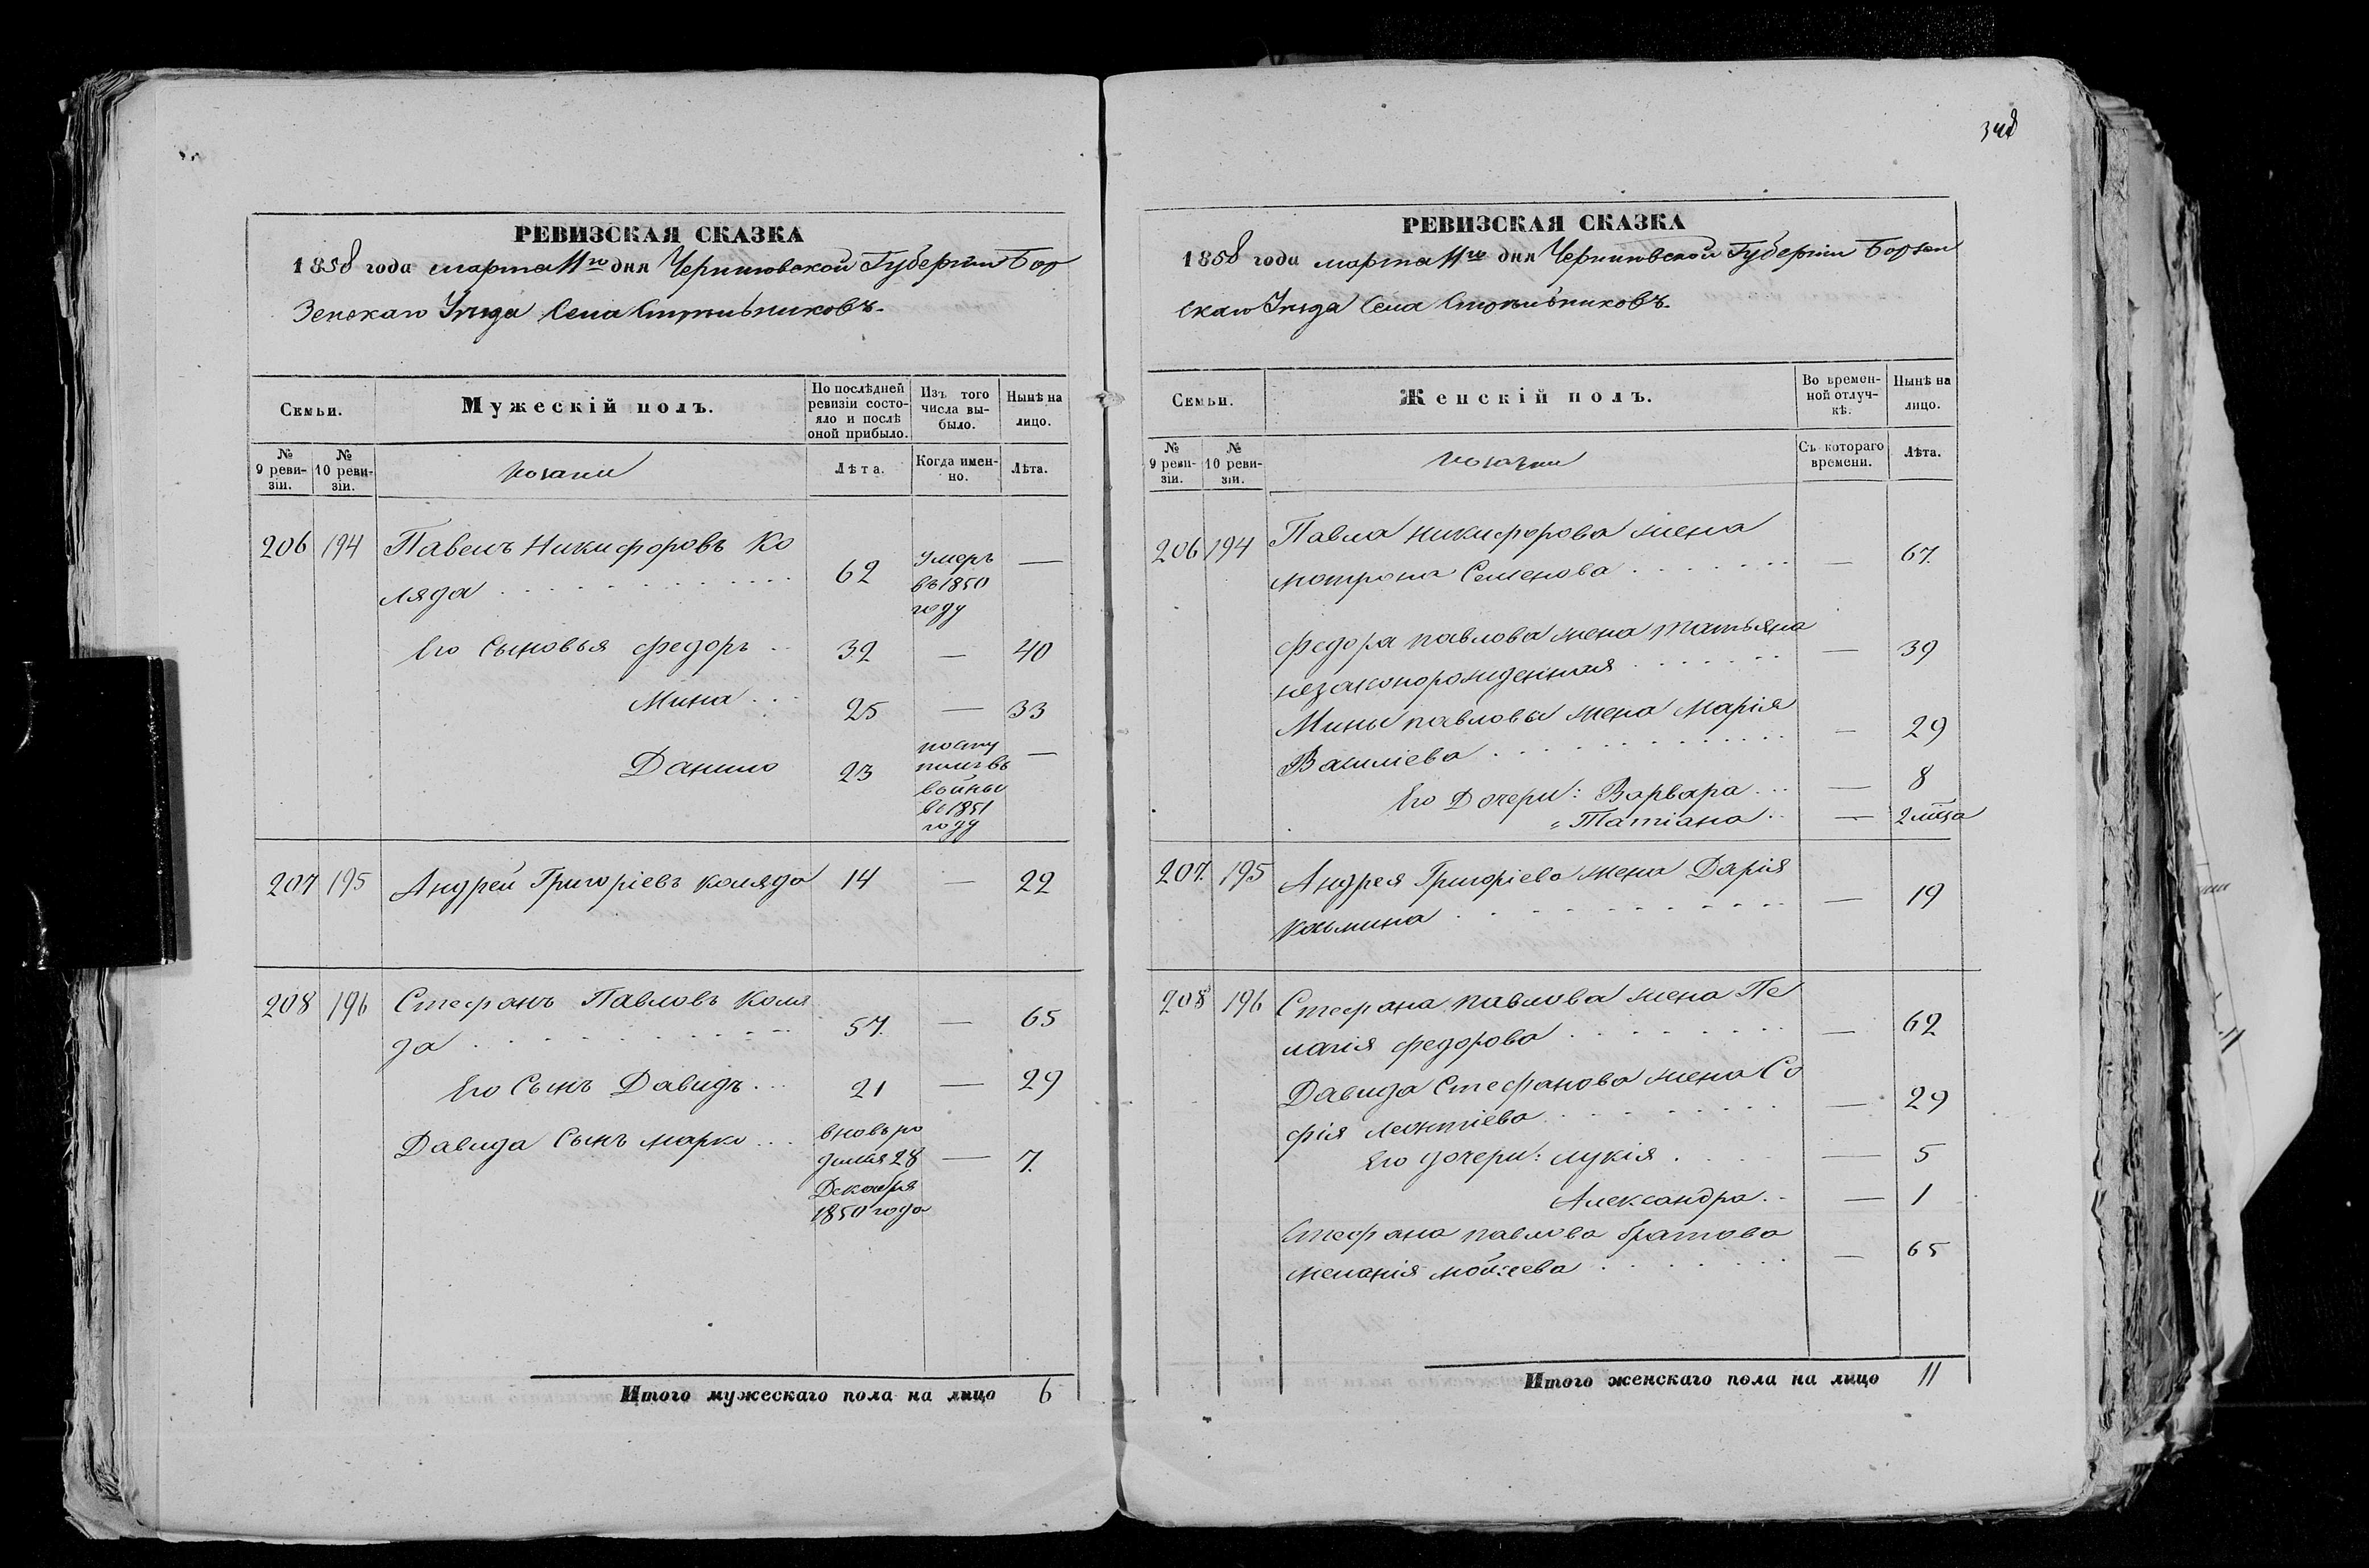 348
РЕВИЗСКАЯ СКАЗКА
1858 года марта 11го дня Черниговской Губерніи Бор
Зенскаго Уѣзда Села Стрѣльниковъ.
Семьи.
Мужескій полъ.
По послѣдней ревизіи состо-
яло и послѣ оной прибыло.
Изъ того числа вы-
было.
Нынѣ на лицо.
№ 9 реви-
зіи.
№ 10 реви-
зіи.
Козаки
Лѣта.
Когда имен-
но.
Лѣта.
206 194 Павелъ Никифоровъ Ко
ляда 62 Умеръ въ 1850 году —
Его Сыновья Федоръ 32 — 40
Мина 25 — 33
Данило 23 посту
пилъ въ
войны
въ 1851
году —
207 195 Андрей Григоріевъ Коляда 14 — 22
208 196 Стефанъ Павловъ Коля
да 57. — 65
Его Сынъ Давидъ 21 — 29
Давида Сынъ Марко вновь ро
дился 28
Декабря
1850 года — 7.
Итого мужескаго пола на лицо 6
РЕВИЗСКАЯ СКАЗКА
1858 года марта 11го дня Черниговской Губерніи Борзен
скаго Уѣзда Села Стрѣльниковъ.
Семьи.
Женскій полъ.
Во времен-
ной отлуч-
кѣ.
Нынѣ на лицо.
№ 9 реви-
зіи.
№ 10 реви-
зіи.
Козачки
Съ котораго времени.
Лѣта.
206 194 Павла Никифорова жена
Мотрона Семенова — 67.
Федора Павлова жена Татьяна
незаконорожденная — 39
Мины Павлова жена Марія
Василіева — 29
Его Дочери: Варвара — 8
„ Татіана — 2 мца
207. 195 Андрея Григоріева жена Дарія
Козьмина — 19
208 196 Стефана Павлова жена Пе
лагія Федорова — 62
Давида Стефанова жена Со
фія Леонтіева — 29
Его дочери: Лукія — 5
Александра — 1
Стефана Павлова братова
Меланія Мойсеева — 65
Итого женскаго пола на лицо 11